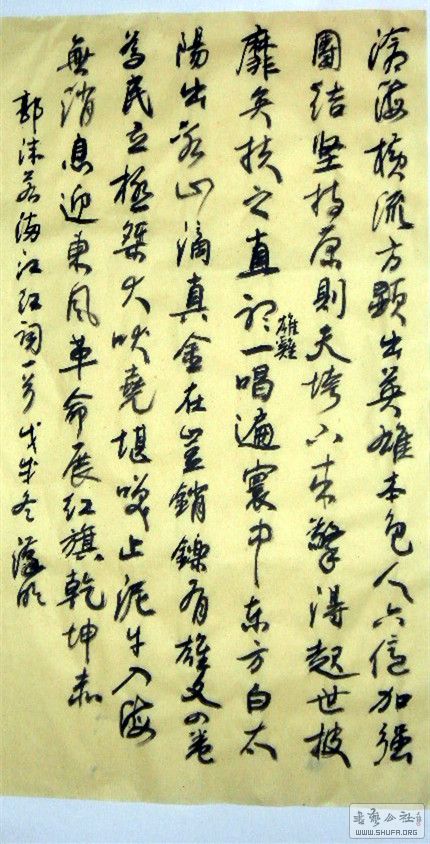 滄海橫流方顯出英雄本色人六億加強
團結坚持原則天垮下来擎得起世披
靡矣扶之直聽一唱遍寰中东方白太
雄雞
陽出冰山滴真金在豈銷鑠有雄文四卷
為民立極桀犬吠堯堪笑止泥牛入海
無消息迎東風革命展红旗乾坤赤
郭沫若满江红词一首戊冬
書藝公社
WWW.SHUFA.ORG